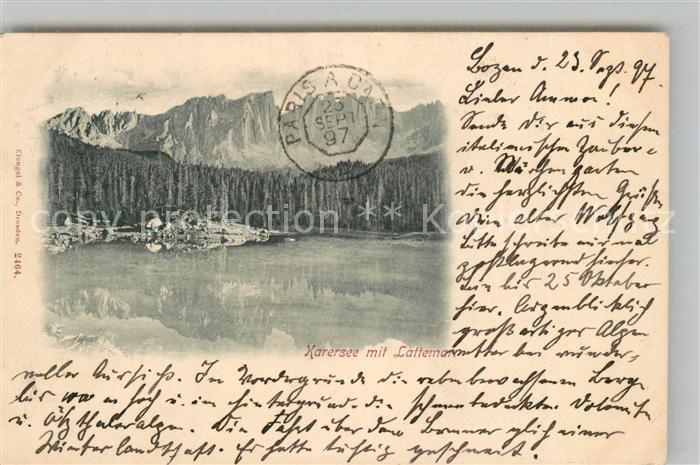 Bozen d. 23. Sept. 97.
Lieber Ammon!
Sende Dir aus diesem
italienischen Zauber=
u. Märchengarten
die herzlichsten Grüße
Dein alter Wolfgang
Bitte schreibe mir mal
postlagernd hierher.
Bin bis 25 Oktober
hier. Augenblicklich
großartiges Alpen
wetter bei wunder-
voller Aussicht. Im Vordergrunde die rebenbewachsenen Berge
bis hoch u. im Hintergrund die schneebedeckten Dolomiten
u. Ötzthaleralpen. Die Fahrt über den Brenner glich einer
Winterlandschaft. Es hatte tüchtig geschneit.
PARIS A CALAI
23
SEPT
97
Karersee mit Lattemar
Stengel & Co., Dresden. 2464.
copyright-protected ** Kohlerschmidt